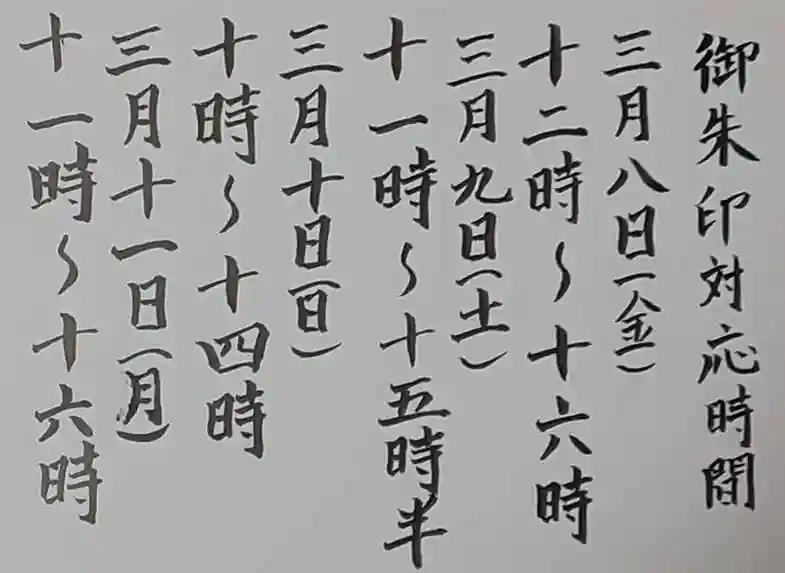 御朱印対応時間
三月八日(金)
十二時〜十六時
三月九日(土)
十一時〜十五時半
三月十日(日)
十時〜十四時
三月十一日(月)
十一時〜十六時